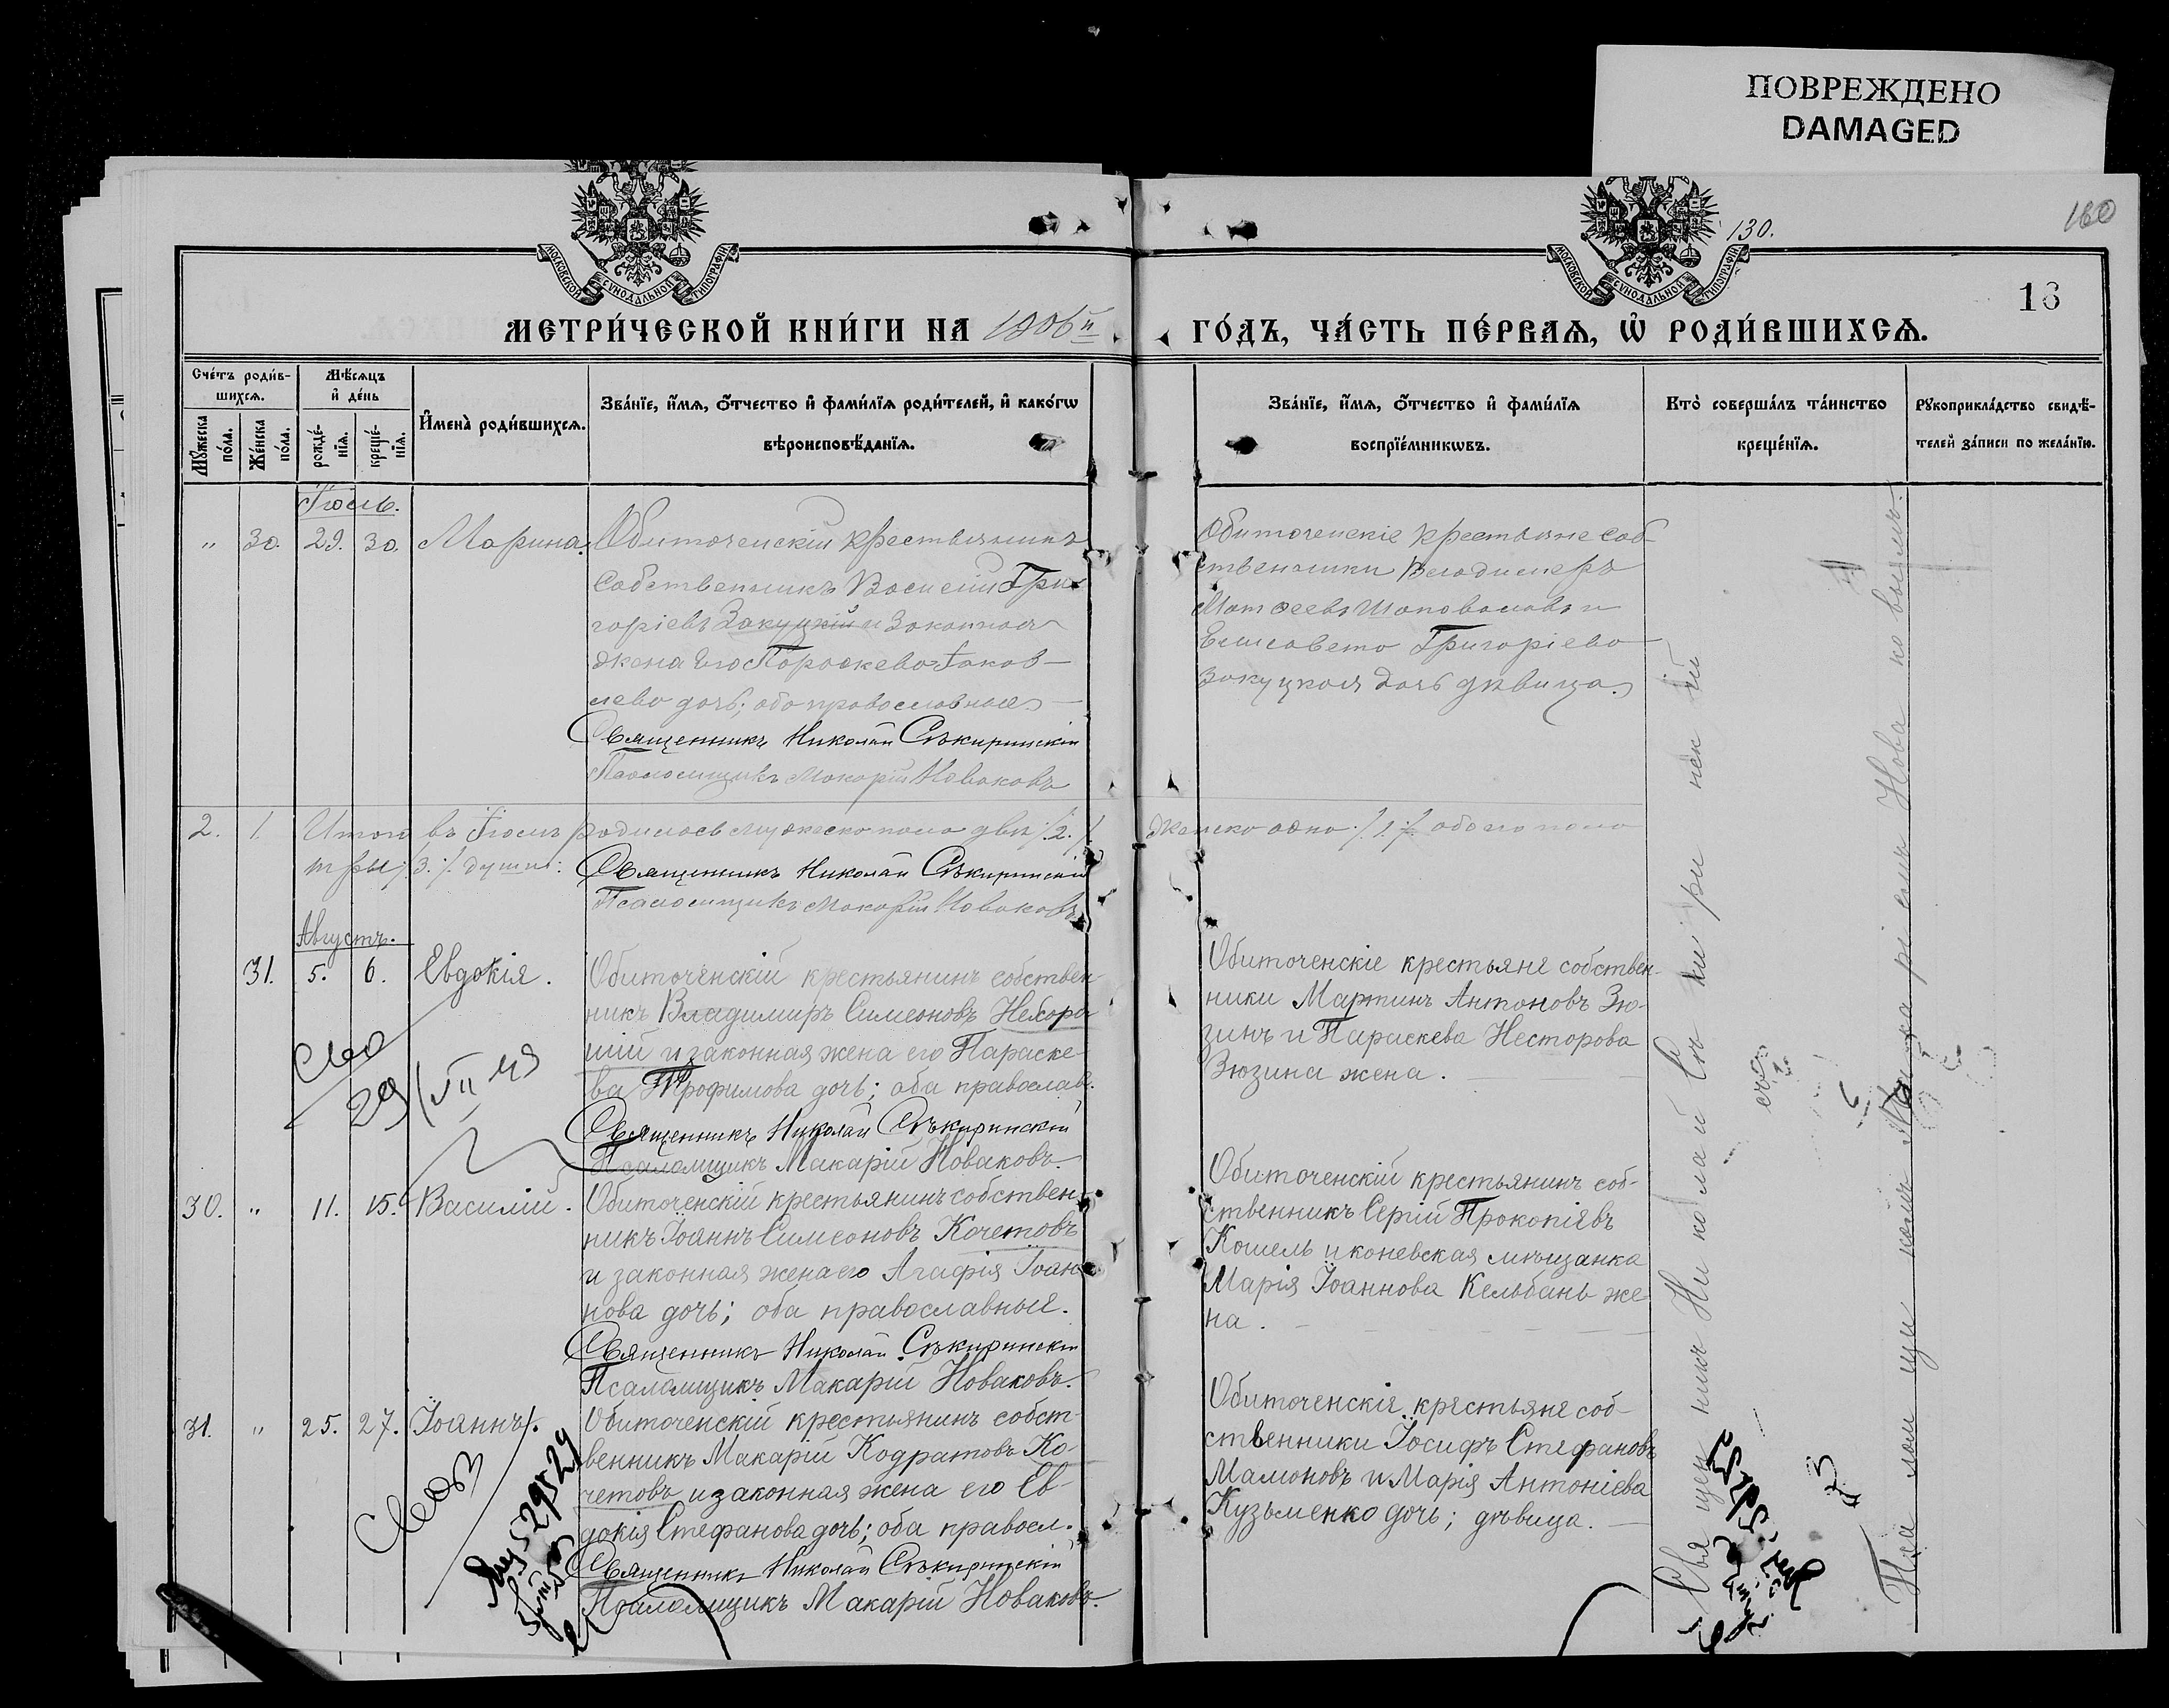 ПОВРЕЖДЕНО
DAMAGED
160
130.
16
МОСКОВСКОЙ СѴНОДАЛЬНОЙ ТИПОГРАФІИ
МОСКОВСКОЙ СѴНОДАЛЬНОЙ ТИПОГРАФІИ
МЕТРИ́ЧЕСКОЙ КНИ́ГИ НА 1906й ГО́ДЪ, ЧА́СТЬ ПЕ́РВАѦ, Ѡ҆ РОДИ́ВШИХСѦ.
Сче́тъ роди́в-
шихсѧ.
Мꙋ́жеска по́ла.
Же́нска по́ла.
Мѣ́сѧцъ
и҆ де́нь
рожде́-нїѧ.
креще́-нїѧ.
И҆мена̀ роди́вшихсѧ.
Зва́нїе, и҆́мѧ, ѻ҆́тчество и҆ фами́лїѧ роди́телей, и҆ како́гѡ
вѣроисповѣ́данїѧ.
Зва́нїе, и҆́мѧ, ѻ҆́тчество и҆ фами́лїѧ
воспрїе́мникѡвъ.
Кто̀ соверша́лъ та́инство
креще́нїѧ.
Рꙋкоприкла́дство свидѣ́-
телей за́писи по жела́нїю.
Іюль.
" 30. 29. 30. Марина.
Обиточенскій крестьянинъ
собственникъ Василій Гри-
горіевъ Закуцкій и законная
жена его Пораскева Іаков-
лева дочь; оба православные.
Священникъ Николай Сѣкиринскій
Псаломщикъ Макарій Новаковъ
Обиточенскіе крестьяне соб-
ственники Владимеръ
Матѳеевъ Шаповаловъ и
Елисавета Григоріева
Закуцкая дочь дѣвица.
2. 1. Итого въ Іюлѣ родилось мужеска пола два /2./ женска одно /1/ обоего пола
три /3./ души:
Священникъ Николай Сѣкиринскій
Псаломщикъ Макарій Новаковъ
Августъ.
31. 5. 6. Евдокія.
Обиточенскій крестьянинъ собствен-
никъ Владимиръ Симеоновъ Нехоро-
шій и законная жена его Параске-
ва Трофимова дочь; оба православ.
Священникъ Николай Сѣкиринскій
Псаломщикъ Макарій Новаковъ.
Обиточенскіе крестьяне собствен-
ники Мартинъ Антоновъ Зю-
зинъ и Параскева Несторова
Зюзина жена.
29/VII 49
30. " 11. 15. Василій.
Обиточенскій крестьянинъ собствен-
никъ Іоаннъ Симеоновъ Кочетовъ
и законная жена его Агафія Іоан-
нова дочь; оба православные.
Священникъ Николай Сѣкиринскій
Псаломщикъ Макарій Новаковъ.
Обиточенскій крестьянинъ соб-
ственникъ Сергій Прокопіевъ
Кошель и коневская мѣщанка
Марія Іоаннова Кельбань же-
на.
31. " 25. 27. Іоаннъ.
Обиточенскій крестьянинъ собст-
венникъ Макарій Кодратовъ Ко-
четовъ и законная жена его Ев-
докія Стефанова дочь; оба правосл.
Священникъ Николай Сѣкиринскій
Псаломщикъ Макарій Новаковъ.
Обиточенскіе крестьяне соб-
ственники Іосифъ Стефановъ
Мамоновъ и Марія Антоніева
Кузьменко дочь; дѣвица.
Священникъ Николай Сѣкиринскій
Псаломщикъ Макарій Новаковъ.